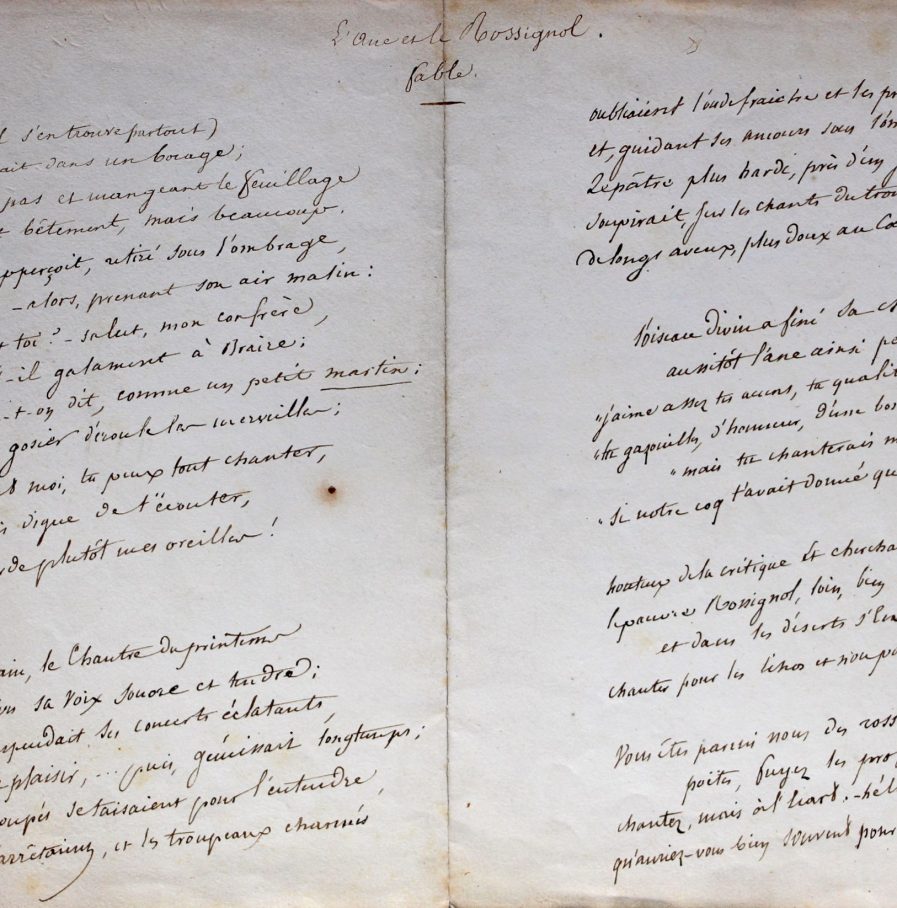 L'Ane et le Rossignol.
fable.
s'en trouve partout)
ait dans un bocage;
pas et mangeant le feuillage
bêtement, mais beaucoup.
apperçoit, retiré sous l'ombrage,
- alors, prenant son air matin:
toi? - salut, mon confrère,
-il galament à Braire;
-t-on dit, comme un petit martin;
gosier déroule les merveilles;
moi, tu peux tout chanter,
digne de t'écouter,
plutôt mes oreilles!
le Chantre du printems
sa voix sonore et tendre;
ses concerts éclatants
plaisir, ... puis, gémissait longtemps;
se taisaient pour l'entendre
, et les troupeaux charmés
oubliaient l'onde fraiche et les
et, guidant ses amours sous
Le pâtre plus hardi, près d'un
soupirait, sur les chants du
de longs aveux, plus doux au
l'oiseau divin a fini sa
aussitôt l'âne ainsi
"j'aime assez tes accens, ta
"tu gazouilles, d'honneur, d'une
"mais tu chanterais
"si notre coq t'avait donné
honteux de la critique Et
le pauvre Rossignol, loin, bien
et dans les déserts
chanter pour les échos et non
Vous êtes parmi nous des
poètes, fuyez les
chantez, mais à l'écart. -
qu'auriez-vous bien souvent pour